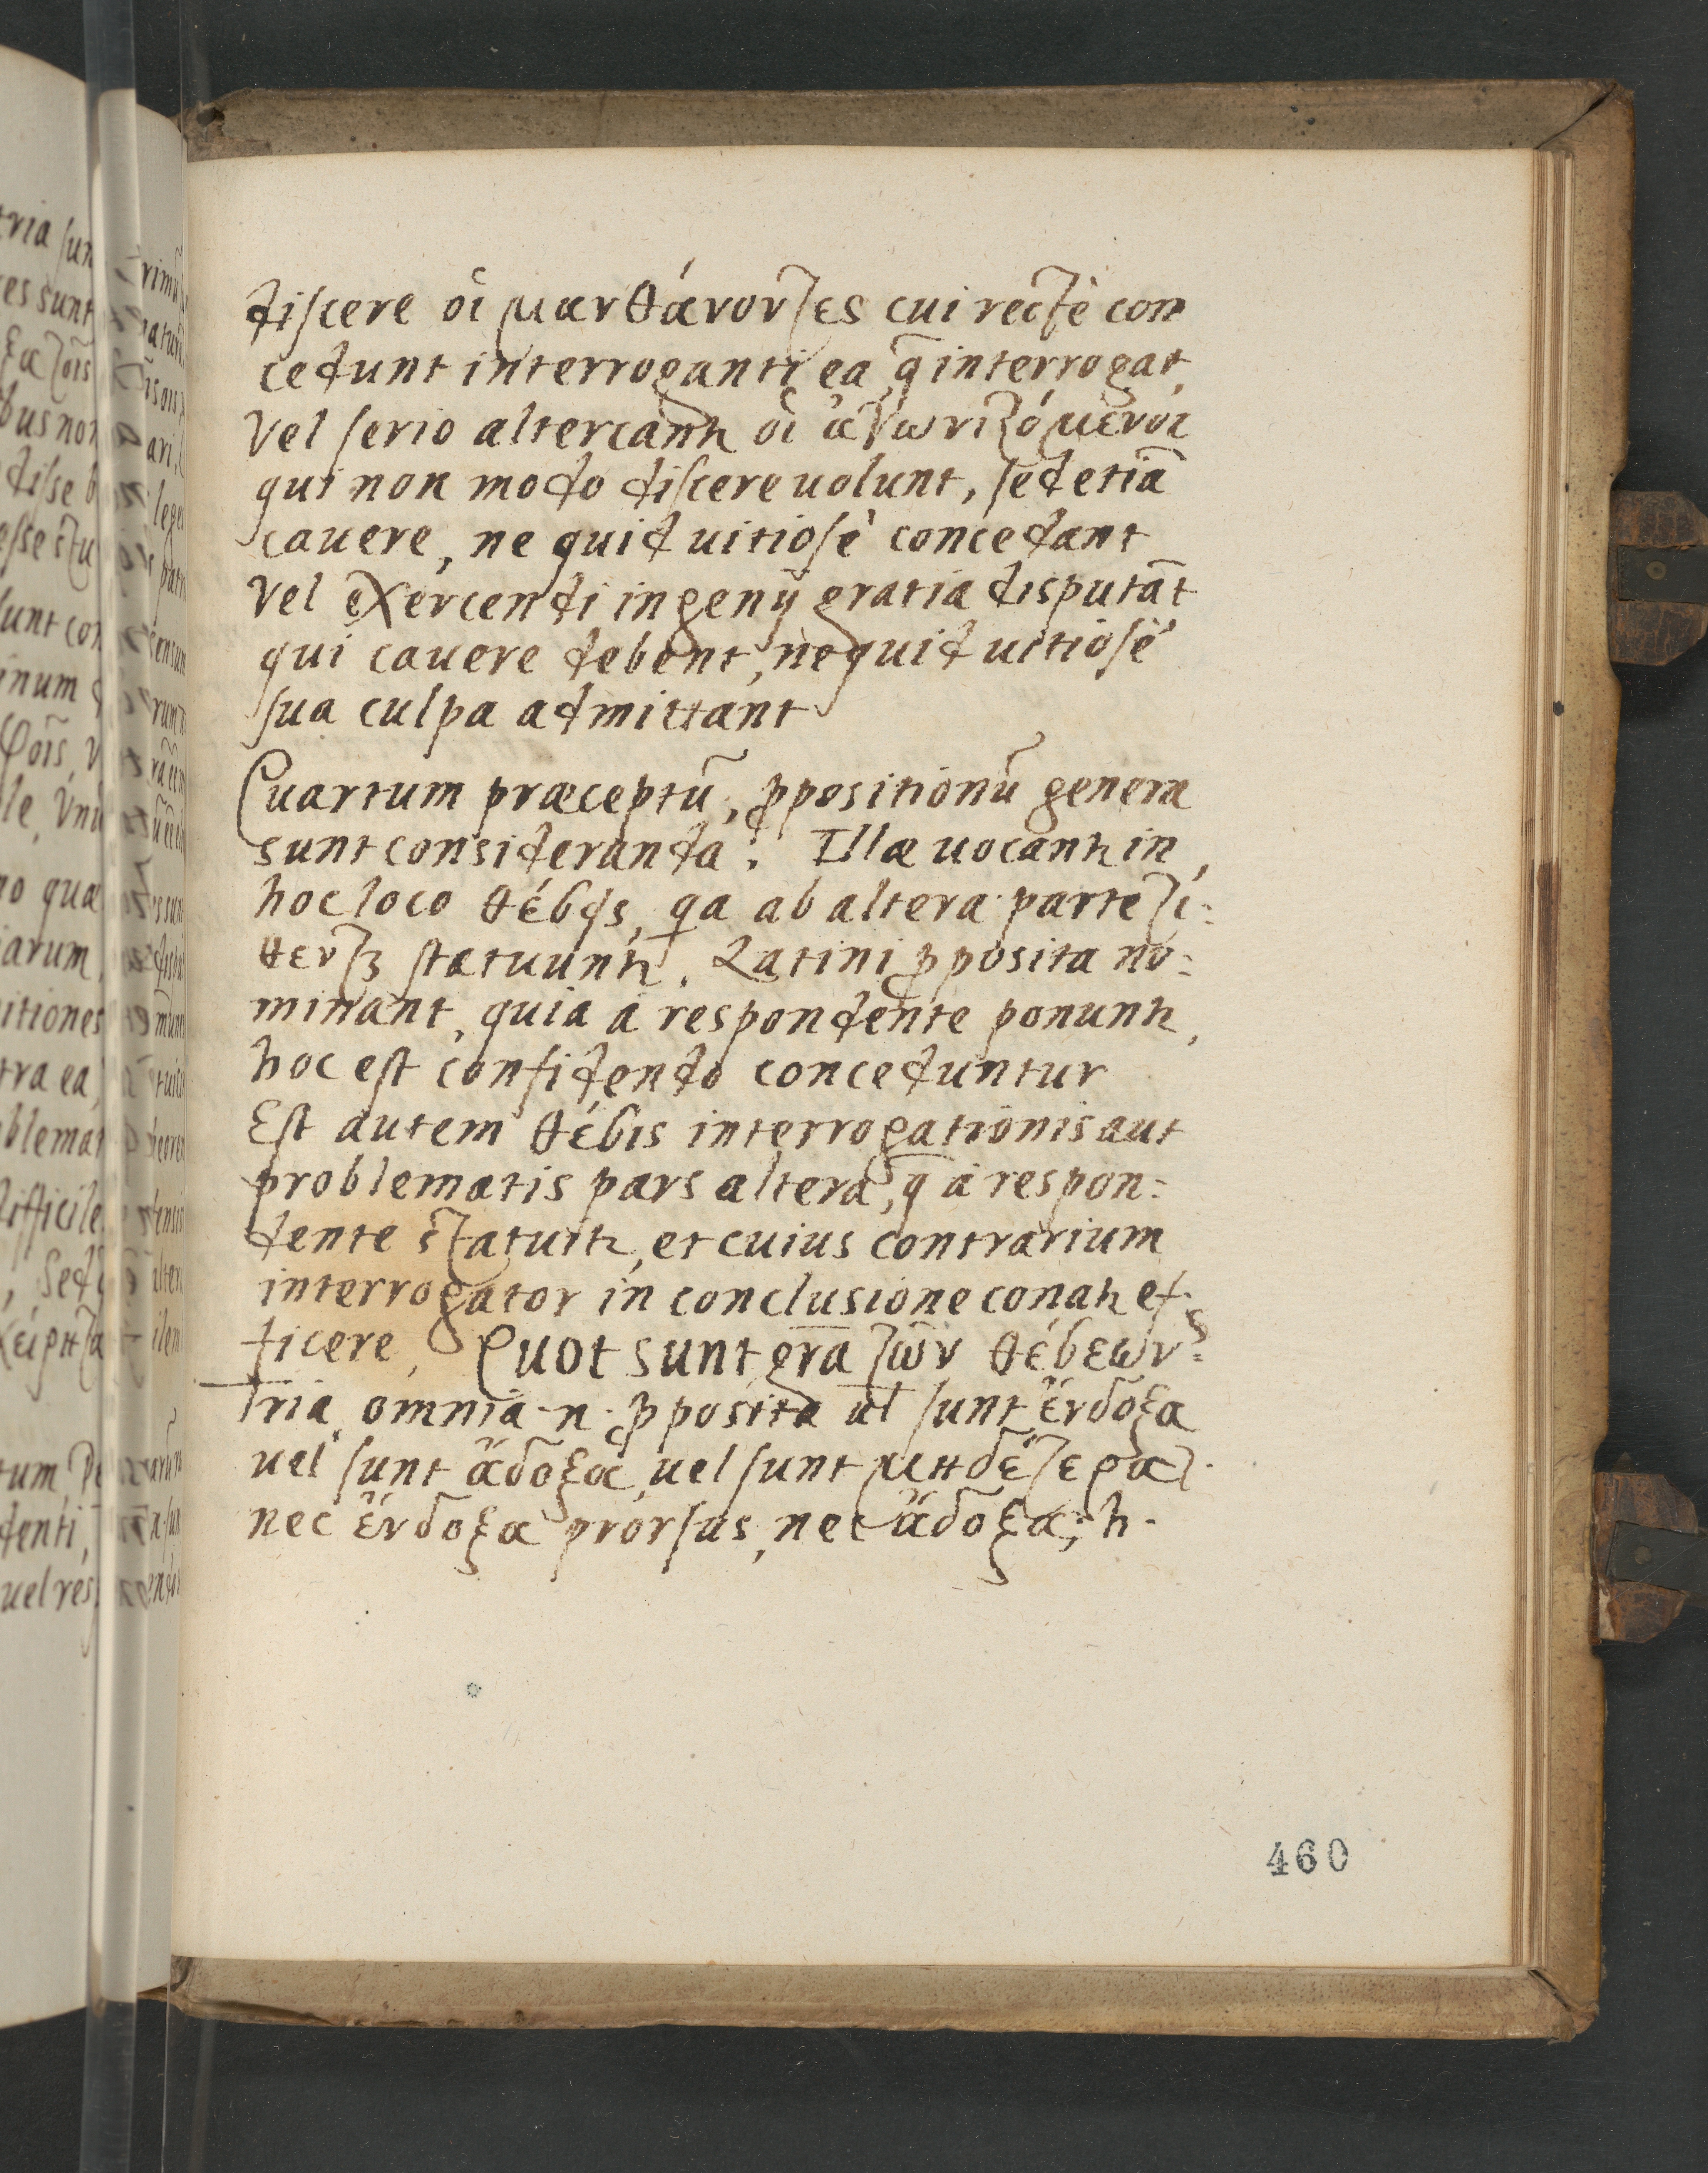 discere οἱ μανθάνοντες cui rectè con
cedunt interroganti ea q̄ interrogat,
Vel serio altercant᷑ οἱ ἀγωνιζόμενοι
qui non modo discere uolunt, sed etiā
cauere, ne quid uitiosè concedant
Vel exercendi ingenij gratia disputāt
qui cauere debent, ne quid uitiosè
sua culpa admittant
Quartum præceptū, ꝓpositionū genera
sunt consideranda: Illæ uocant᷑ in
hoc loco θέσεις, qa ab altera parte τί:
θεντ statuunt᷑. Latini ꝓposita no:
minant, quia à respondente ponunt᷑,
hoc est confidendo conceduntur
Est autem θέσις interrogationis aut
problematis pars altera, q̄ à respon:
dente statuit᷑, et cuius contrarium
interrogator in conclusione conat᷑ ef:
ficere, Quot sunt gn̄a τῶν θέσεων?
Tria omnia .n. ꝓposita ul̄ sunt ἔνδοξα
uel sunt ἄδοξα, uel sunt μηδέτερα
nec ἔνδοξα prorsus, nec ἄδοξα; h.
460